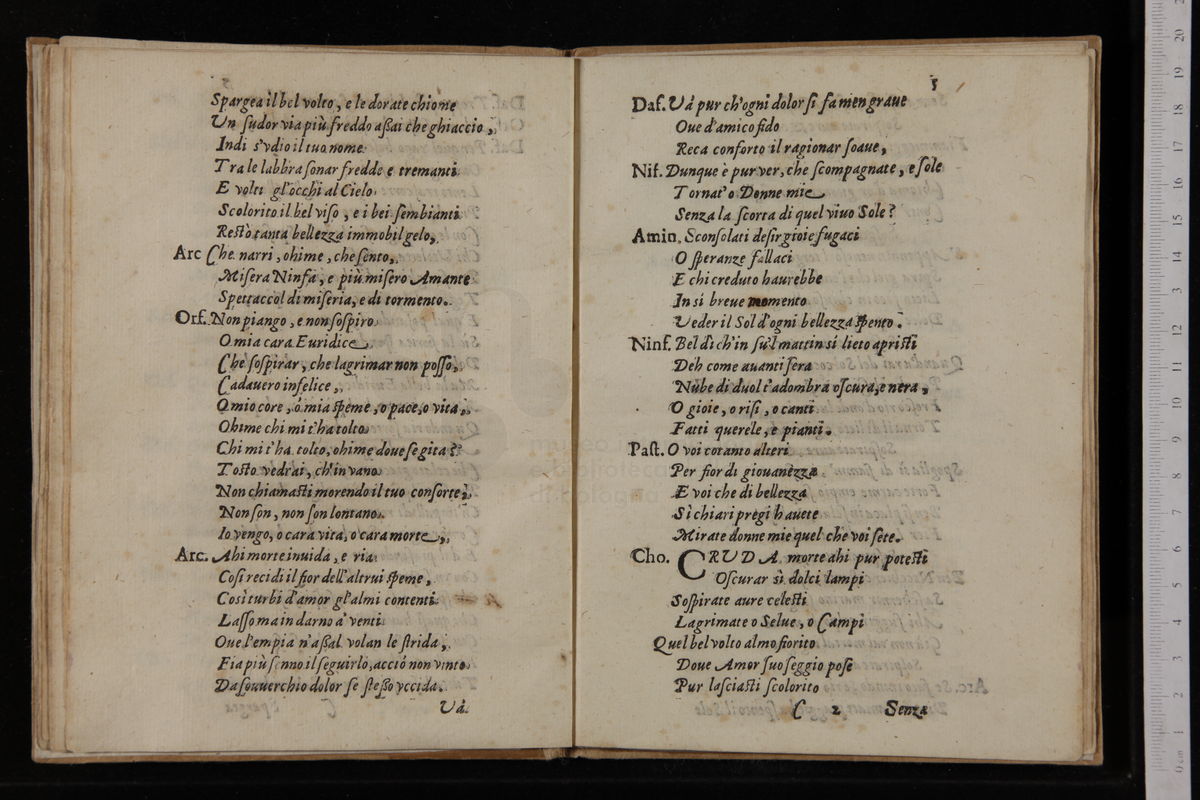 Spargea il bel volto, e le dorate chiome
Un sudor via più freddo aßai che ghiaccio,
Indi s'vdio il tuo nome
Tra le labbra sonar fredde e tremanti
E volti gl'occhi al Cielo
Scolorito il bel viso, e i bei sembianti
Restò tanta bellezza immobil gelo,
Arc Che narri, ohime, che sento,
Misera Ninfa, e più misero Amante
Spettaccol di miseria, e di tormento.
Orf. Non piango, e non sospiro
O mia cara Euridice,
Che sospirar, che lagrimar non posso,
Cadauero infelice,
O mio core, ò mia speme, o pace, o vita,
Ohime chi mi t'ha tolto
Chi mi t'ha tolto, ohime doue se gita?
Tosto vedrai, ch'in vano
Non chiamasti morendo il tuo consorte,
Non son, non son lontano.
Io vengo, o cara vita, o cara morte,
Arc. Ahi morte inuida, e ria
Cosi recidi il fior dell'altrui speme,
Così turbi d'amor gl'almi contenti
Lasso ma indarno a' venti
Oue l'empia n'aßal volan le strida,
Fia più senno il seguirlo, acciò non vinto
Da souuerchio dolor se steßo vccida.
Uà.
5
Daf. Uà pur ch'ogni dolor si fa men graue
Oue d'amico fido
Reca conforto il ragionar soaue,
Nif. Dunque è pur ver, che scompagnate, e sole
Tornat'o Donne mie
Senza la scorta di quel viuo Sole?
Amin. Sconsolati desir gioie fugaci
O speranze fallaci
E chi creduto haurebbe
In si breue momento
Ueder il Sol d'ogni bellezza spento.
Ninf. Bel dì ch'in su'l mattin si lieto apristi
Deh come auanti sera
Nube di duol t'adombra oscura, e nera,
O gioie, o risi, o canti
Fatti querele, e pianti.
Past. O voi cotanto alteri
Per fior di giouanèzza
E voi che di bellezza
Sì chiari pregi hauete
Mirate donne mie quel che voi sete.
Cho. CRUDA morte ahi pur potesti
Oscurar sì dolci lampi
Sospirate aure celesti
Lagrimate o Selue, o Campi
Quel bel volto almo fiorito
Doue Amor suo seggio pose
Pur lasciasti scolorito
C 2 Senza